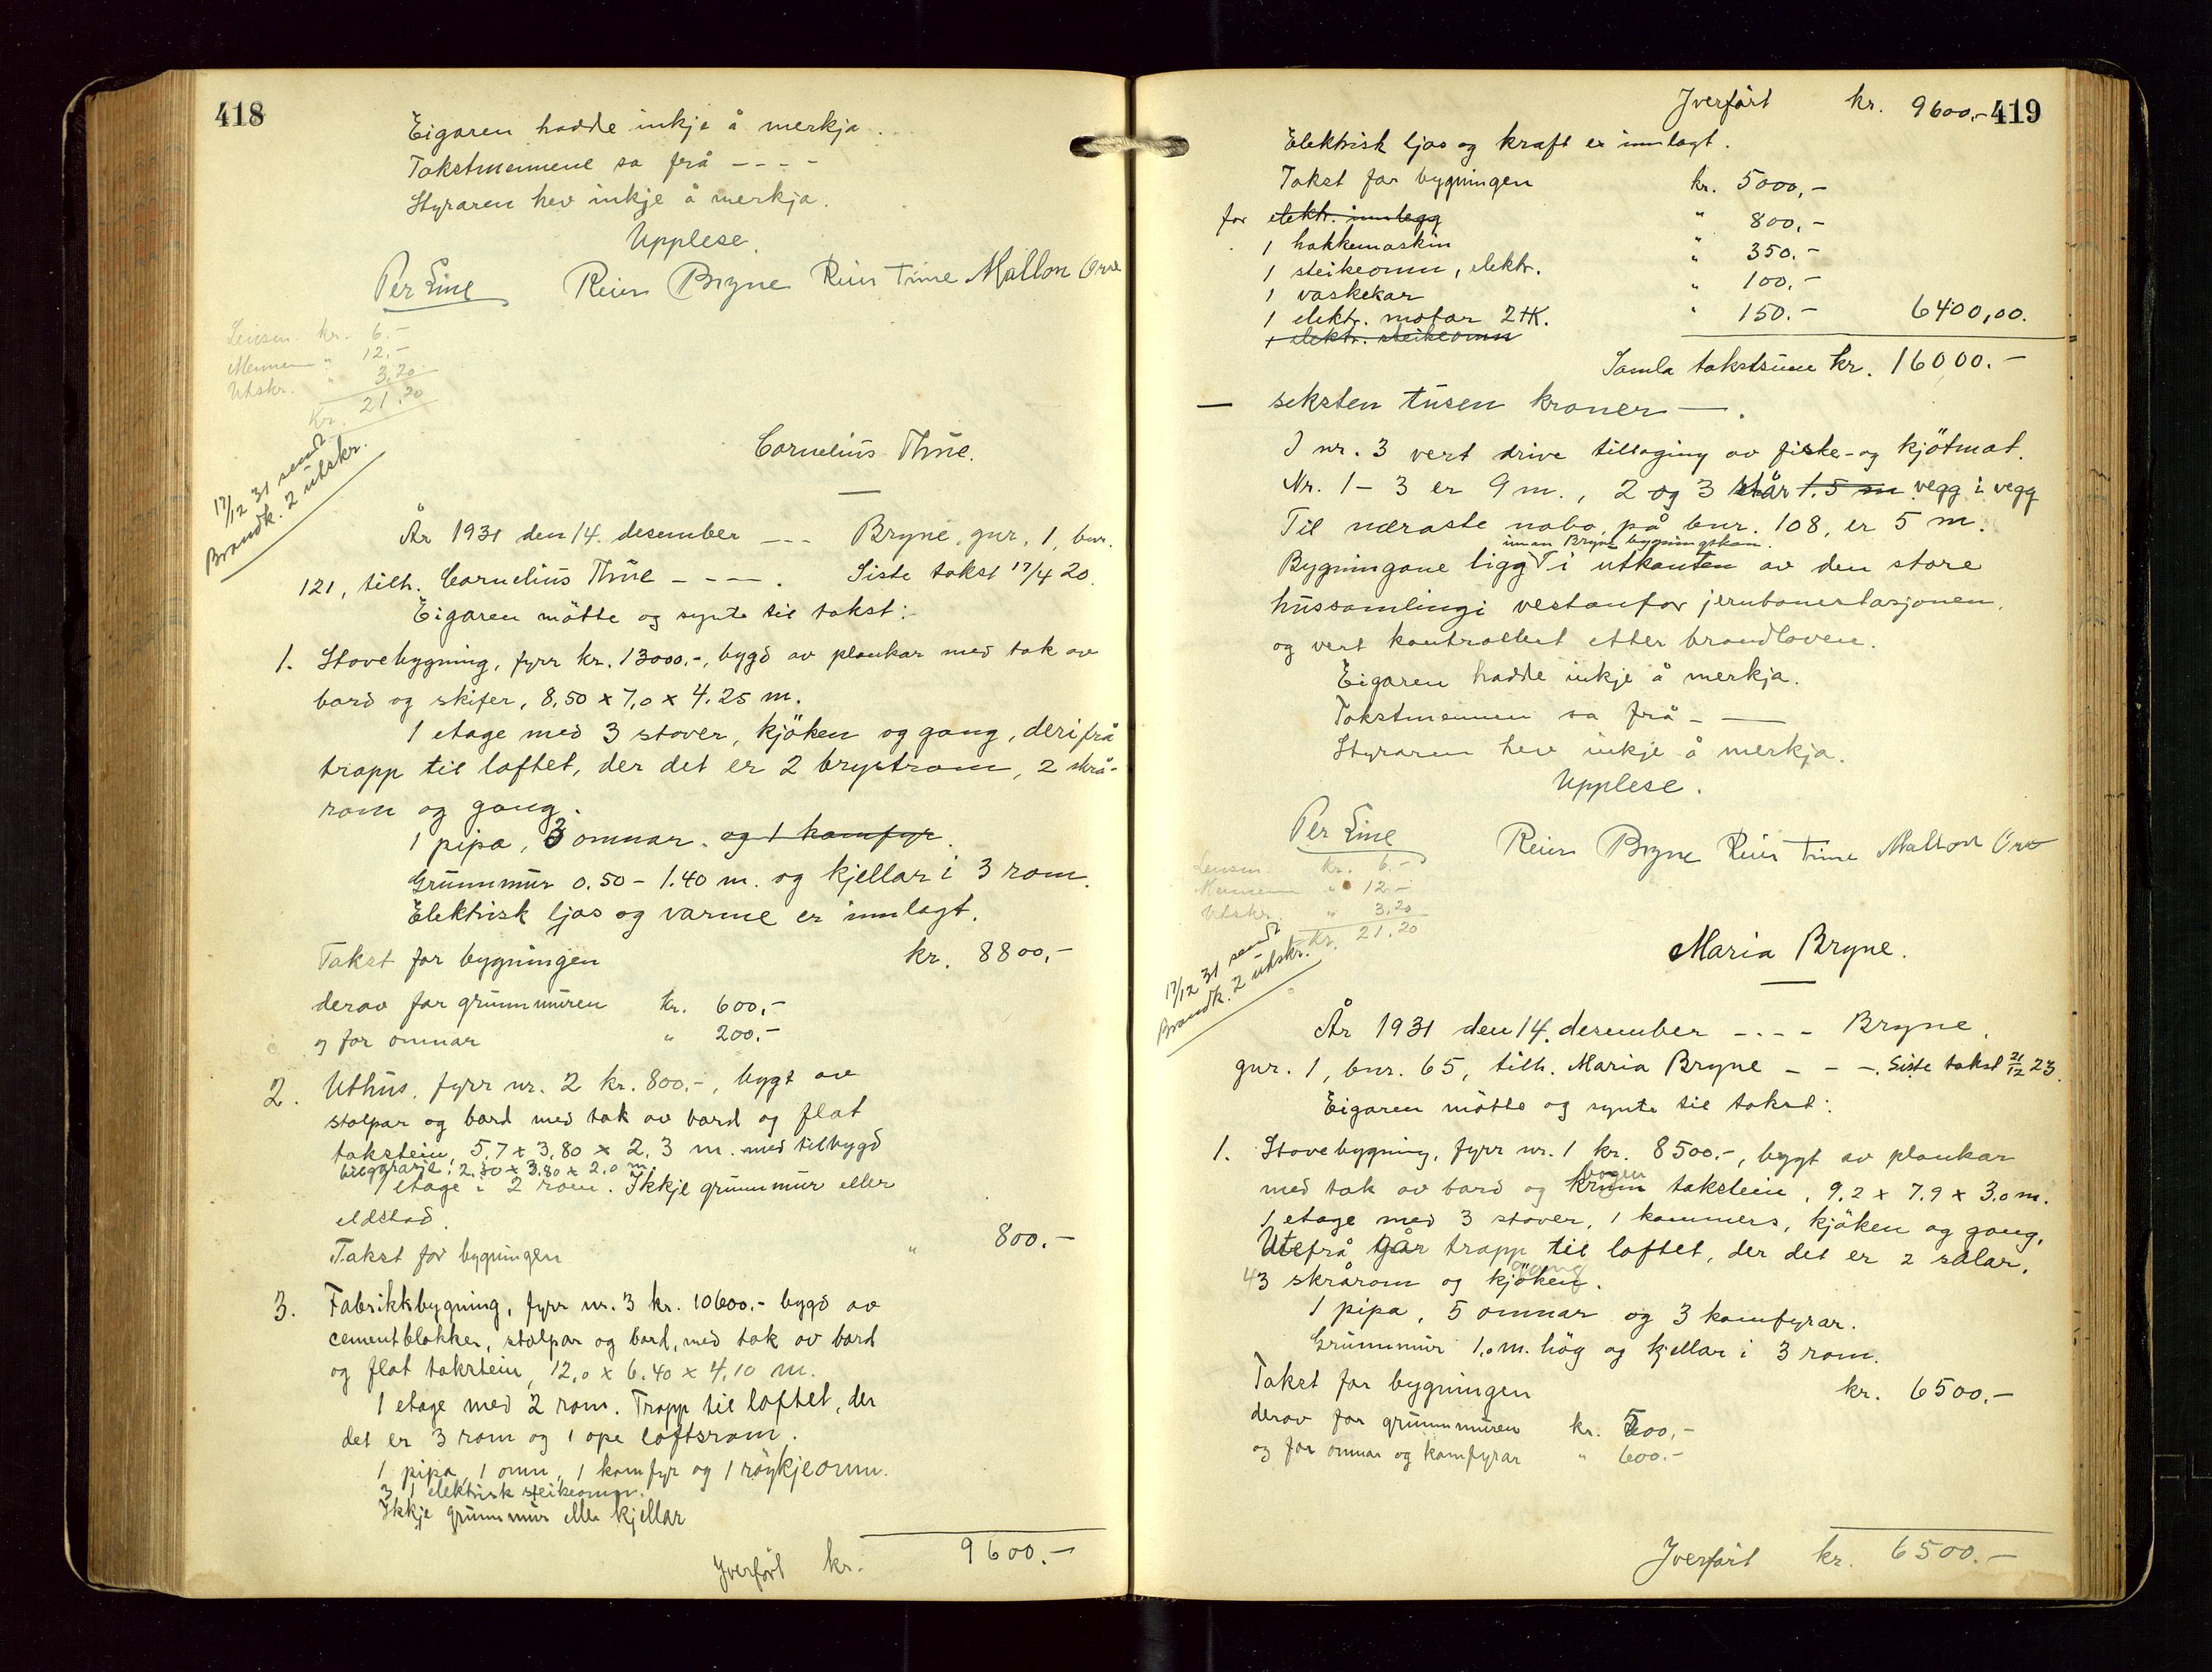 418
Eigaren hadde inkje å merkja.
Takstmennene sa frå - - - -
Styraren hev inkje å merkja.
Upplese.
Per Line Reier Bryne Reier Time Mallon
Lensm. kr. 6.-
Mennene " 12.-
Utskr. " 3.20
Kr. 21.20
17/12 31 sendt
Brandk. 2 utskr.
Cornelius Thue.
År 1931 den 14. desember - - - Bryne, gnr. 1, bnr.
121, tilh. Cornelius Thue - - - -. Siste takst 17/4 20.
Eigaren møtte og synte til takst:
1. Stovebygning, fyrr kr. 13000.-, bygd av plankar med tak av
bord og skifer, 8,50 x 7,0 x 4.25 m.
1 etage med 3 stover, kjöken og gang, derifrå
trapp til loftet, der det er 2 brystrom, 2 skrå-
rom og gang.
1 pipa, 3 omnar. og 1 komfyr.
Grunnmur 0.50 - 1.40 m. og kjellar i 3 rom.
Elektrisk ljos og varme er innlagt.
Takst for bygningen kr. 8800,-
derav for grunnmuren kr. 600,-
og for omnar " 200.-
2. Uthus, fyrr nr. 2 kr. 800.-, bygt av
stolpar og bord med tak av bord og flat
takstein, 5,7 x 3,80 x 2,3 m. med tilbygd
2,30 x 3,80 x 2,0 m.
1 etage i 2 rom. Ikkje grunnmur eller
eldstad.
Takst for bygningen " 800.-
3. Fabrikkbygning, fyrr nr. 3 kr. 10600.- bygd av
cementblokker, stolpar og bord, med tak av bord
og flat takstein, 12,0 x 6.40 x 4,10 m.
1 etage med 2 rom. Trapp til loftet, der
det er 3 rom og 1 ope loftsrom.
1 pipa, 1 omn, 1 komfyr og 1 röykjeomn.
1 elektrisk steikeomn.
Ikkje grunnmur eller kjellar
Yverført kr. 9600.-
419
Yverført kr. 9600.-
Elektrisk ljos og kraft er innlagt.
Takst for bygningen kr. 5000,-
for elektr. innlegg " 800,-
1 hakkemaskin " 350.-
1 steikeomn, elektr. " 100.-
1 vaskekar " 150.- 6400,00.
1 elektr. motor 2 HK.
1 elektr. steikeomn
Samla takstsum kr. 16000.-
— seksten tusen kroner —.
I nr. 3 vert drive tillaging av fiske- og kjötmat.
Nr. 1 - 3 er 9 m., 2 og 3 står 1.5 m vegg i vegg
Til næraste nabo, på bnr. 108, er 5 m.
innan Bryne bygningskom.
Bygningane ligg i utkanten av den store
hussamlingi vestanfor jernbanestasjonen,
og vert kontrollert etter brandloven.
Eigaren hadde inkje å merkja.
Takstmennen sa frå - —
Styraren hev inkje å merkja.
Upplese.
Per Line Reier Bryne Reier Time Mallon
Lensm. kr. 6.-
Mennene " 12.-
Utskr. " 3,20
Kr. 21.20
17/12 31 sendt
Brandk. 2 utskr.
Maria Bryne.
År 1931 den 14. desember - - - - Bryne,
gnr. 1, bnr. 65, tilh. Maria Bryne - - -. Siste takst 21/12 23.
Eigaren møtte og synte til takst:
1. Stovebygning, fyrr nr. 1 kr. 8500.-, bygt av plankar
bogen
med tak av bord og krum takstein, 9,2 x 7.9 x 3.0 m.
1 etage med 3 stover, 1 kammers, kjöken og gang.
Utefrå går trapp til loftet, der det er 2 salar,
gang
43 skrårom og kjöken.
1 pipa, 5 omnar og 3 komfyrar.
Grunnmur 1,0 m. høg og kjellar i 3 rom.
Takst for bygningen kr. 6500.-
derav for grunnmuren kr. 500,-
og for omnar og komfyrar " 600.-
Yverført kr. 6500.-